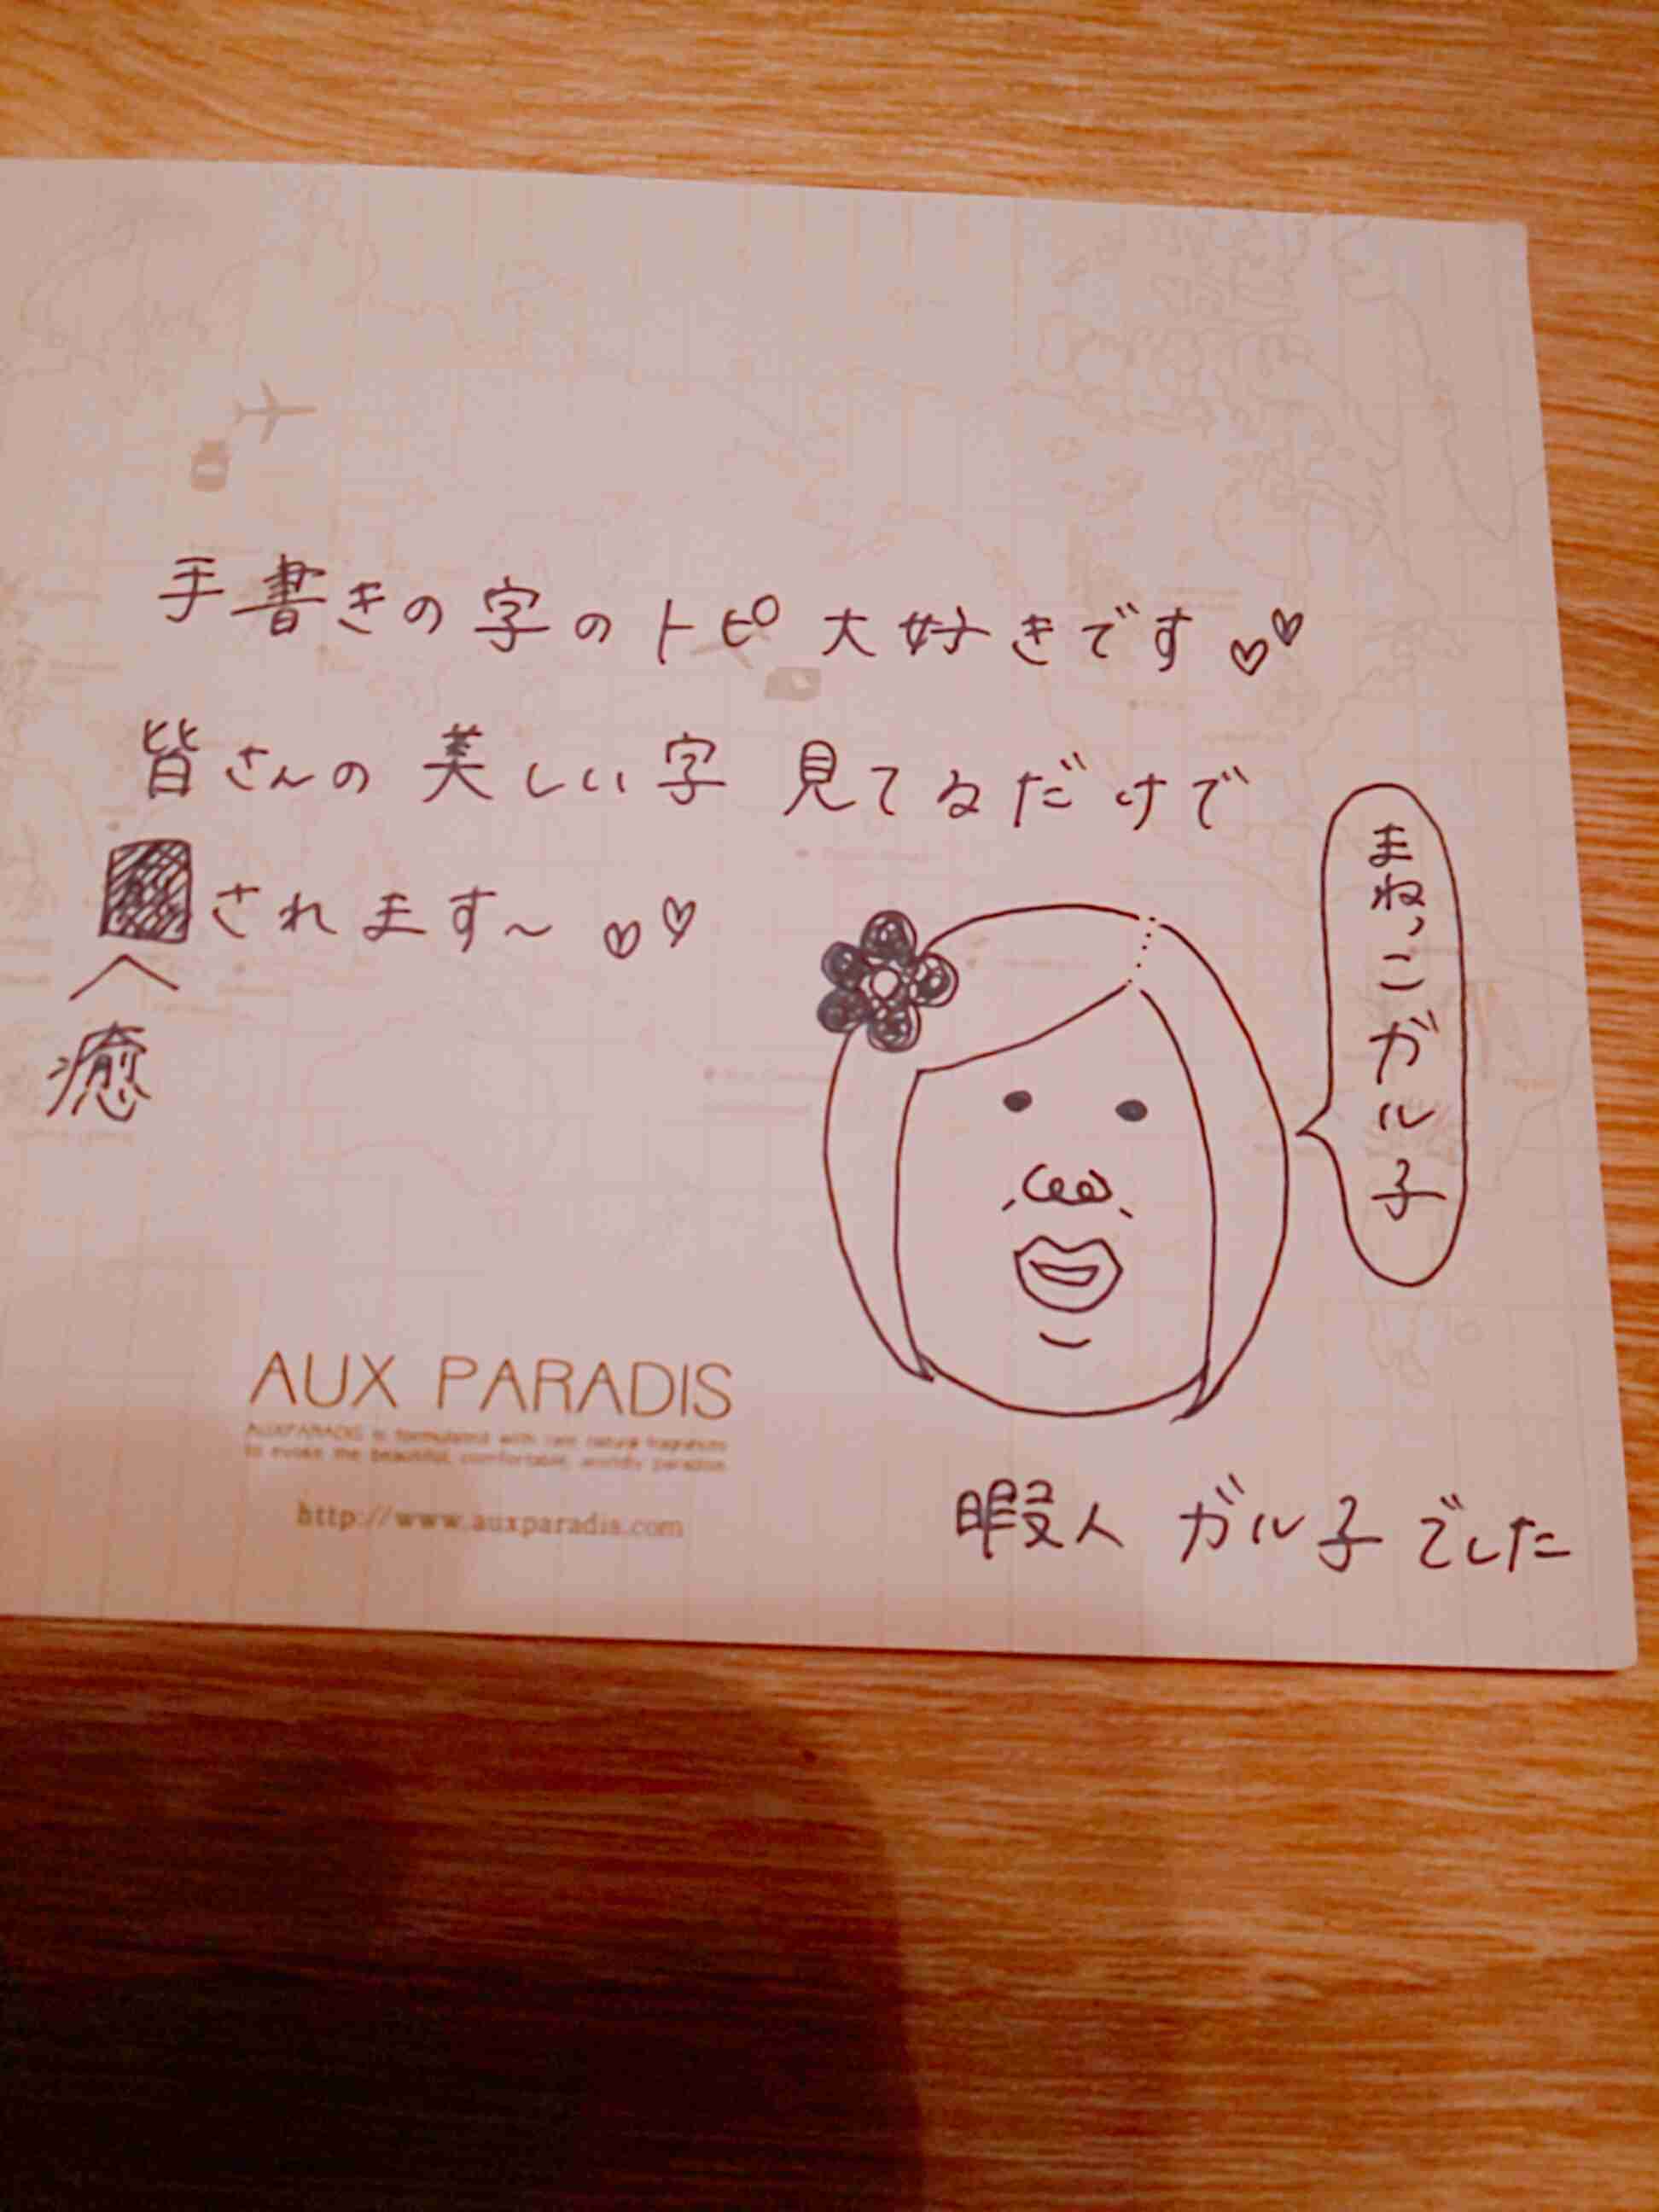 手書きの字のトピ大好きです♡♡
皆さんの美しい字見てるだけで
されます〜♡♡
癒
まねっこガル子
AUX PARADIS
AUXPARADIS is formulated with rare natural fragrances
to evoke the beautiful, comfortable, worldly paradise.
http://www.auxparadis.com
暇人 ガル子でした